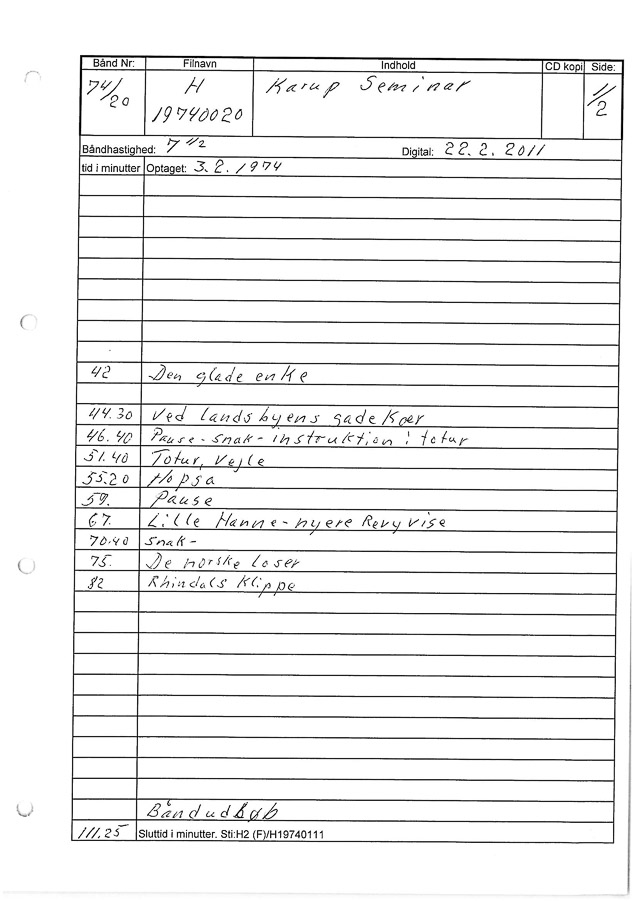 Bånd Nr: Filnavn Indhold CD kopi Side:
74/20 H 19740020 Karup Seminar 1/2
Båndhastighed: 7 1/2 Digital: 22.2.2011
tid i minutter Optaget: 3.2.1974
42 Den glade enke
44.30 Ved landsbyens gadekær
46.40 Pause-snak-instruktion i totur
51.40 Totur, Vejle
55.20 Hopsa
59. Pause
67. Lille Hanne-nyere Revyvise
70.40 snak-
75. De norske loser
82 Rhindals Klippe
Båndudløb
111.25 Sluttid i minutter. Sti:H2 (F)/H19740111